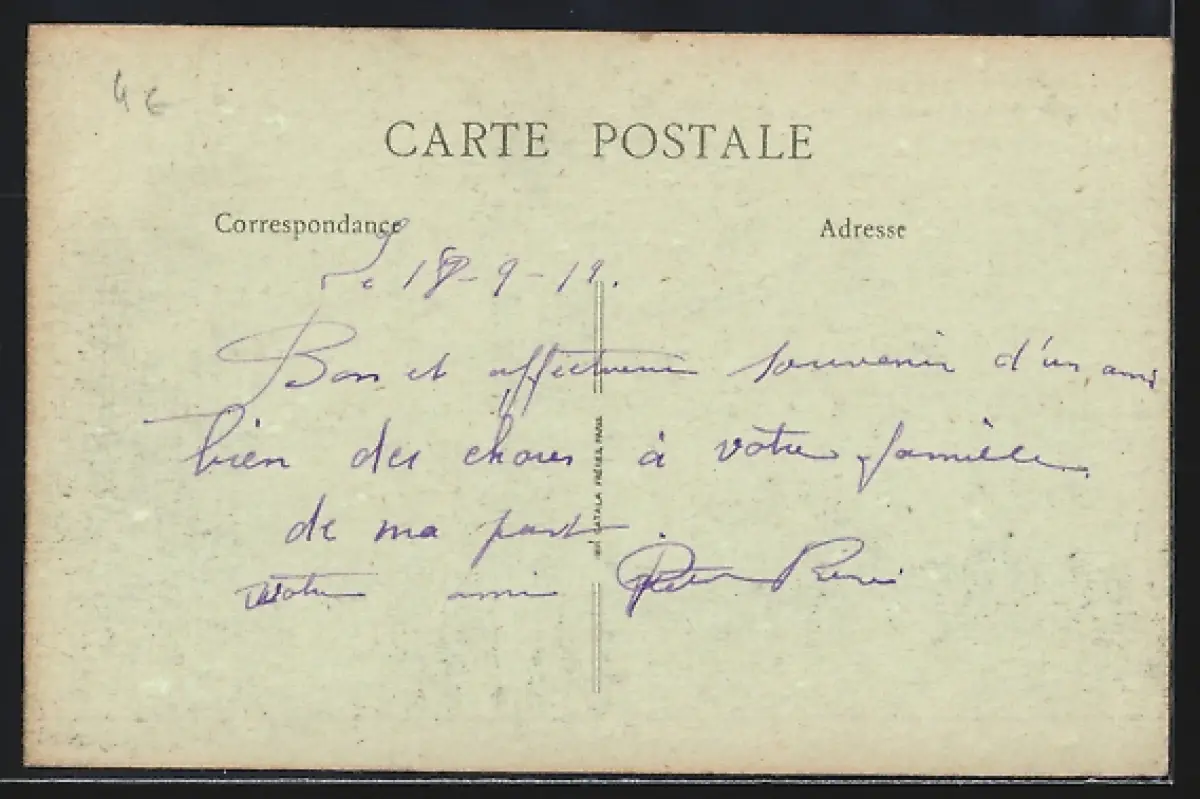 4 €
CARTE POSTALE
Correspondance
Adresse
Le 18-9-19.
Bon et affectueux souvenir d'un ami
bien des choses à votre famille
de ma part.
votre ami René
CATALA FRÈRES PARIS